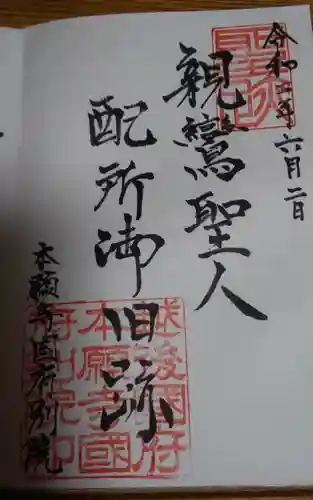 聖跡
令和二年六月二日
親鸞聖人
配所御旧跡
越後國府
本願寺國
府別院印
本願寺国府別院